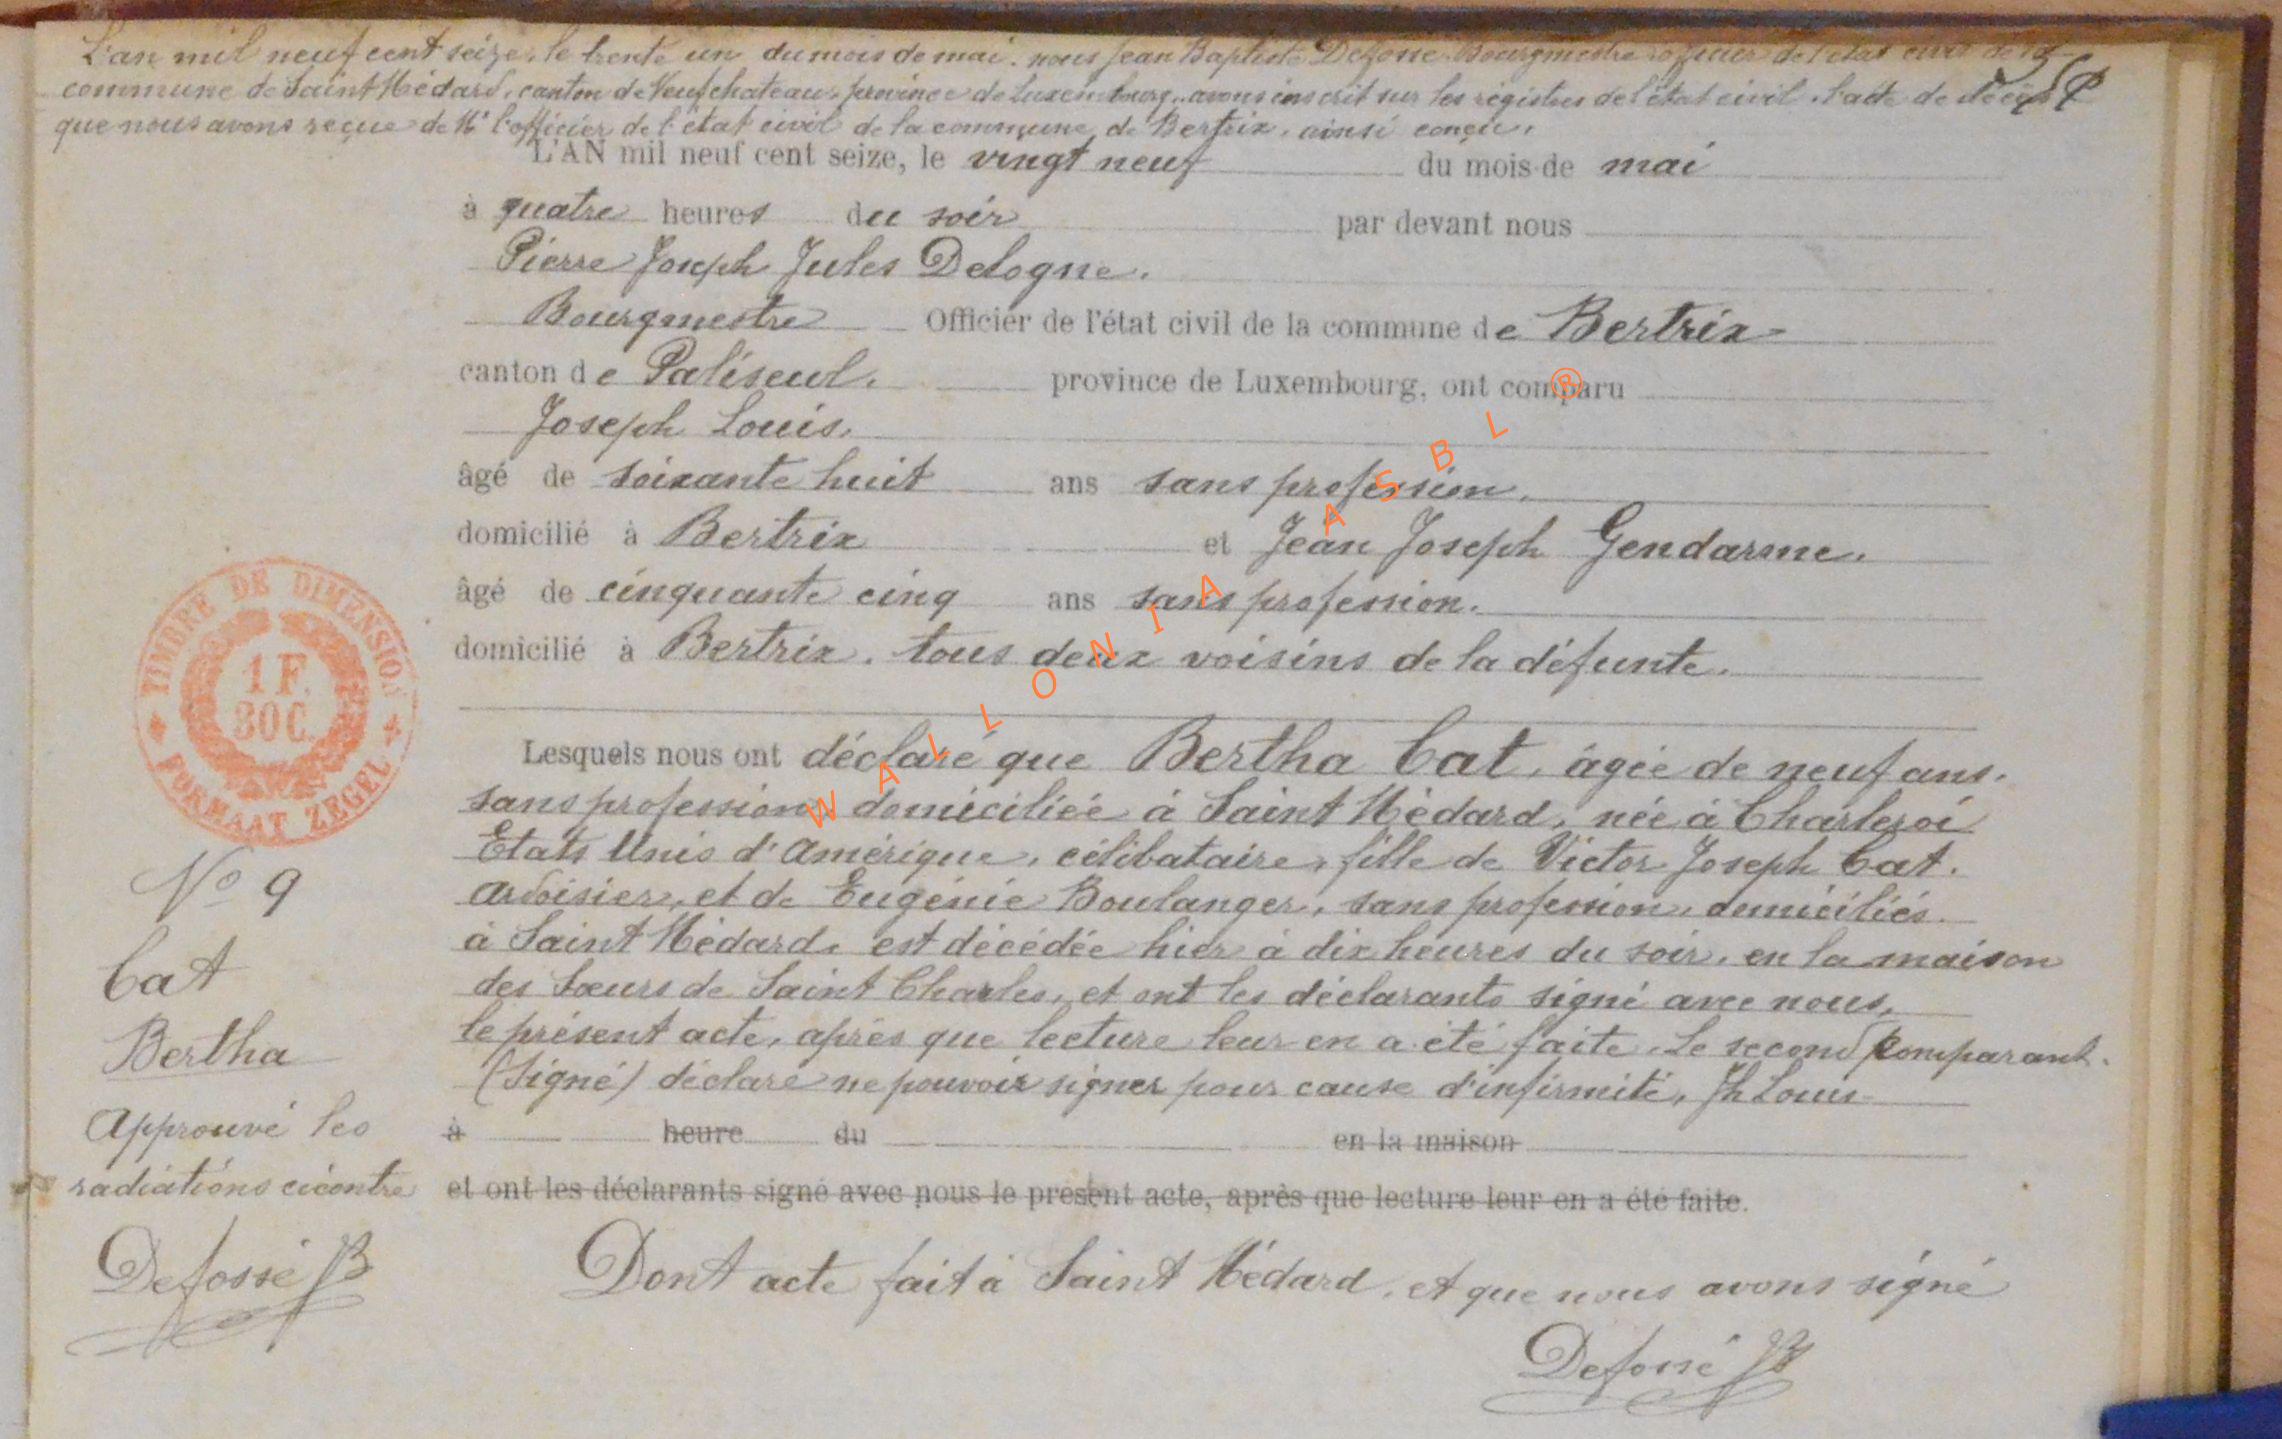 L'an mil neuf cent seize, le trente un du mois de mai. nous Jean Baptiste Defosse Bourgmestre officier de l'état civil de la
commune de Saint Médard, canton de Neufchateau, province de Luxembourg, avons inscrit sur les régistres de l'état civil. l'acte de décès
que nous avons reçue de Mr l'officier de l'état civil de la commune de Bertrix, ainsi conçu.
L'AN mil neuf cent seize, le vingt neuf du mois de mai
à quatre heures du soir par devant nous
Pierre Joseph Jules Delogne.
Bourgmestre Officier de l'état civil de la commune de Bertrix
canton de Paliseul. province de Luxembourg, ont comparu
Joseph Louis.
âgé de soixante huit ans sans profession.
domicilié à Bertrix et Jean Joseph Gendarme.
âgé de cinquante cinq ans sans profession.
domicilié à Bertrix. tous deux voisins de la défunte.
Lesquels nous ont déclaré que Bertha Cat, âgée de neuf ans.
sans profession, domiciliée à Saint Médard, née à Charleroi
Etats Unis d'Amérique, célibataire, fille de Victor Joseph Cat.
ardoisier, et de Eugénie Boulanger, sans profession, domiciliés
à Saint Médard, est décédée hier à dix heures du soir, en la maison
des Sœurs de Saint Charles, et ont les déclarants signé avec nous,
le présent acte, après que lecture leur en a été faite. Le second comparant.
(Signé) déclare ne pouvoir signer pour cause d'infirmité, Jh Louis
à heure du en la maison
et ont les déclarants signé avec nous le présent acte, après que lecture leur en a été faite.
Dont acte fait à Saint Médard, et que nous avons signé
Defossé JB
TIMBRE DE DIMENSION
1 F.
30 C.
FORMAAT ZEGEL
No 9
Cat
Bertha
Approuvé les
radiations cicontre
Defossé JB
WALLONIA ASBL ®